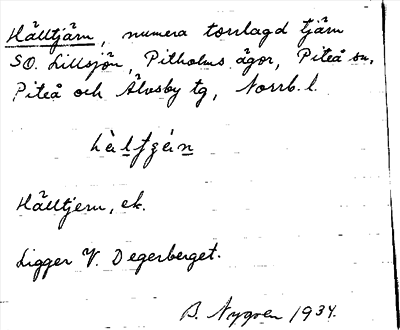 Hälltjärn, numera torrlagd tjärn
SO. Lillsjön, Pitholms ägor, Piteå sn,
Piteå och Älvsby tg, Norrb. l.
Hälltjern, ek.
Ligger V. Degerberget.
B. Nygren 1934.